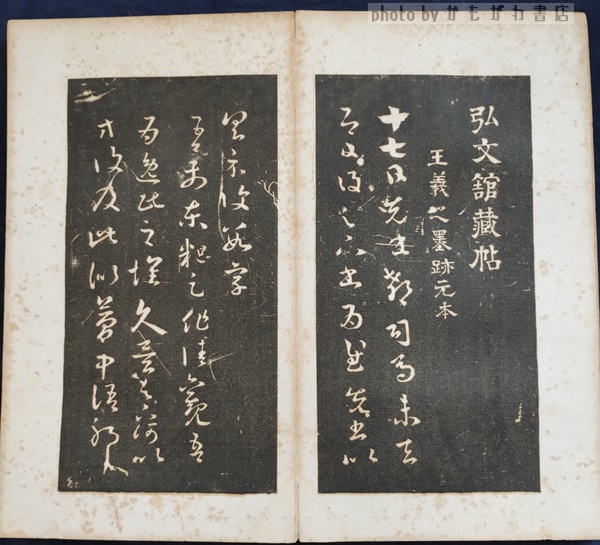 photo by かもがわ書店
弘文舘藏帖
王羲之墨跡元本
十七日先書郗司馬未去
即日得足下書為慰先書以
具示復數字
吾前東粗足作佳觀吾
為逸民之懷久矣足下何以
方復及此似夢中語耶